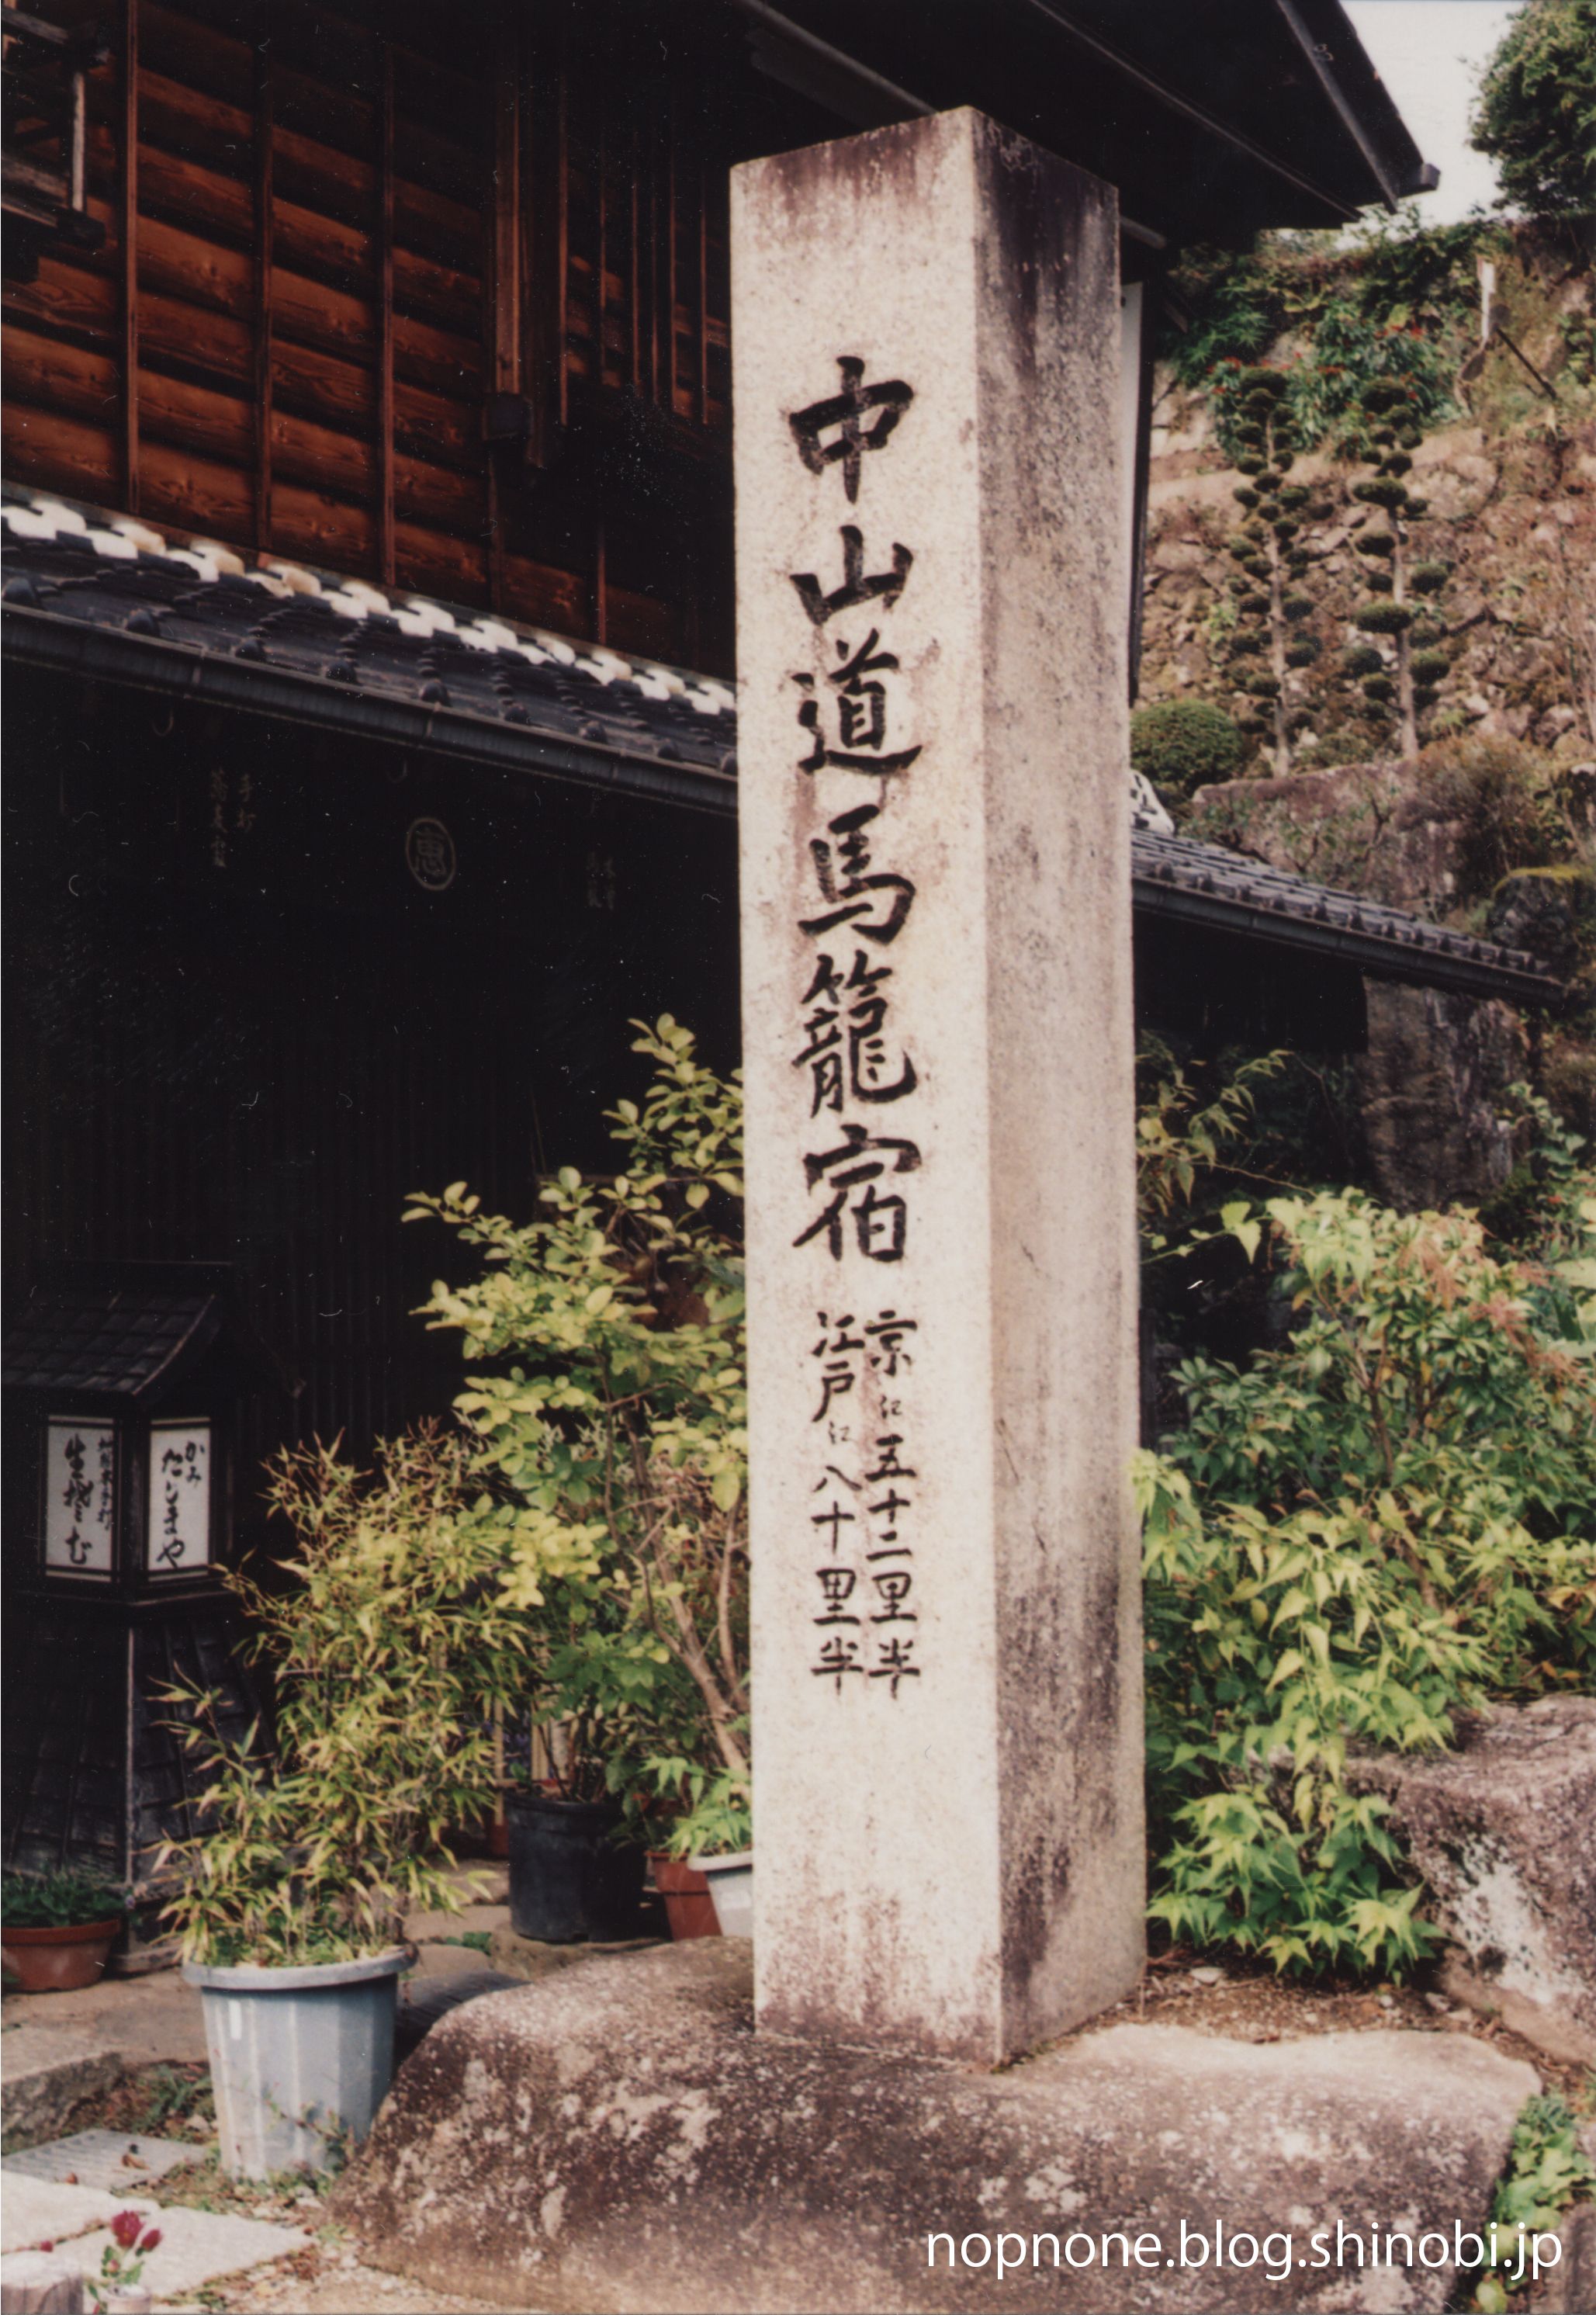 中山道馬籠宿
京江五十二里半
江戸江八十里半
恵
かみ
たじまや
生そば
nopnone.blog.shinobi.jp